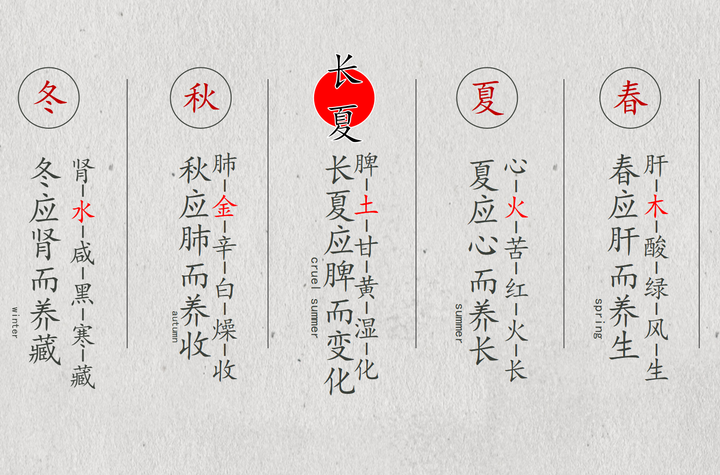 春
肝-木-酸-绿-风-生
春应肝而养生
spring
夏
心-火-苦-红-火-长
夏应心而养长
summer
长夏
脾-土-甘-黄-湿-化
长夏应脾而变化
cruel summer
秋
肺-金-辛-白-燥-收
秋应肺而养收
autumn
冬
肾-水-咸-黑-寒-藏
冬应肾而养藏
winter